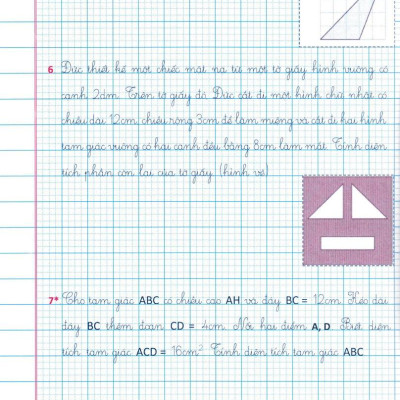 6 Đức thiết kế một chiếc mặt nạ từ một tờ giấy hình vuông có
cạnh 2dm. Trên tờ giấy đó Đức cắt đi một hình chữ nhật có
chiều dài 12cm, chiều rộng 3cm để làm miệng và cắt đi hai hình
tam giác vuông có hai cạnh đều bằng 8cm làm mắt. Tính diện
tích phần còn lại của tờ giấy (hình vẽ)
7* Cho tam giác ABC có chiều cao AH và đáy BC = 12cm. Kéo dài
đáy BC thêm đoạn CD = 4cm. Nối hai điểm A, D. Biết diện
tích tam giác ACD = 16cm². Tính diện tích tam giác ABC